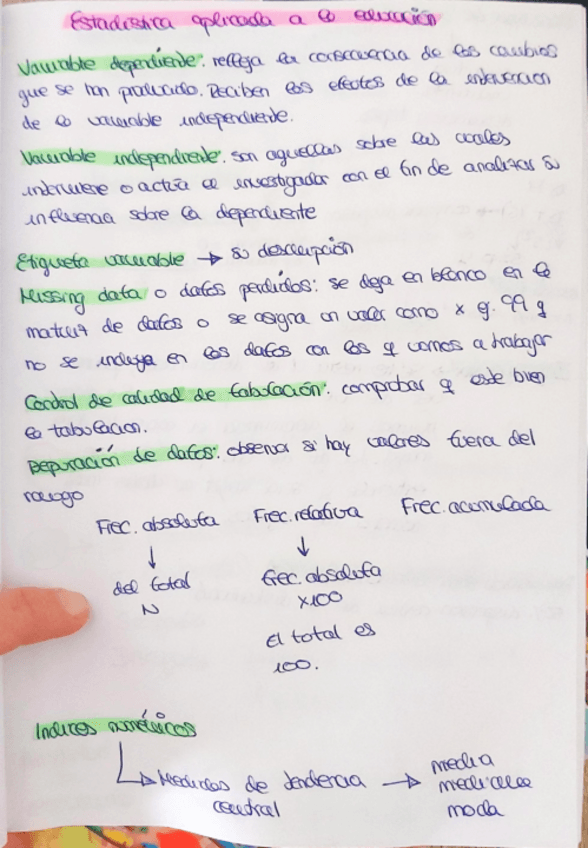 Estadística aplicada a la educación
Variable dependiente: refleja la consecuencia de los cambios
que se han producido. Reciben los efectos de la intervención
de la variable independiente.
Variable independiente: son aquellas sobre las cuales
interviene o actúa el investigador con el fin de analizar su
influencia sobre la dependiente
Etiqueta variable → su descripción
Missing data o datos perdidos: se deja en blanco en la
matriz de datos o se asigna un valor como x ej. 99 y
no se incluye en los datos con los q vamos a trabajar
Control de calidad de tabulación: comprobar q este bien
la tabulación.
Depuración de datos: observar si hay valores fuera del
rango
Frec. absoluta Frec. relativa Frec. acumulada
↓ ↓
del total frec. absoluta
N x100
El total es
100.
Indices numéricos
→ Medidas de tendencia → media
central mediana
moda